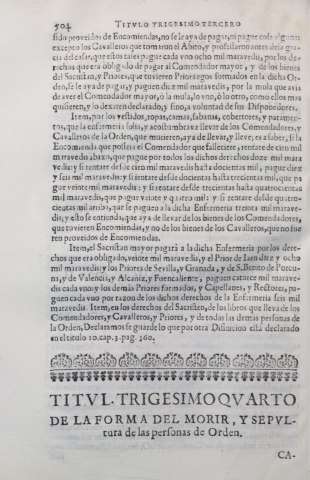 504 TITVLO TRIGESIMO TERCERO
sido proveidos de Encomiendas, no se le aya de pagar, ni pague cosa alguna:
excepto los Cavalleros que tomaron el Abito, y professaron antes de la gracia
del casar, que estos tales pague cada vno ocho mil maravedis, por los derechos
que era obligado de pagar al Comendador mayor, y de los bienes
del Sacristan, y Priores, que tuvieren Prioratgos formados en la dicha Orden,
se le aya de pagar, y paguen diez mil maravedis, por la mula que avia
de aver el Comendador mayor, ò la mula, lo vno, ò lo otro, como ellos mas
quisieren, y lo dexaren declarado, y sino, a voluntad de sus Disponedores.
Item, por los vestados, ropas, camas, sabanas, cobertores, y paramentos,
que la enfermeria solia, y acostumbrava llevar de los Comendadores, y
Cavalleros de la Orden, que murieren, aya de llevar, y lleve; es a saber, si la
Encomienda que posseia el Comendador que falleciere, rentare de cien mil
maravedis abaxo, que pague por todos los dichos derechos doze mil maravedis;
y si rentare desde cien mil maravedis hasta docientas mil, pague diez
y seis mil maravedis: y si rentare desde docientas hasta trecientas mil, que pague
veinte mil maravedis: y si rentare desde trecientas hasta quatrocientas
mil maravedis, que pague veinte y quatro mil: y si rentare desde quatrocientas
mil arriba, que se paguen a la dicha Enfermeria treinta mil maravedis;
y esto se entienda, que aya de llevar de los bienes de los Comendadores,
que tuvieren Encomiendas, y no de los bienes de los Cavalleros, que no fueren
proveidos de Encomiendas.
Item, el Sacristan mayor pagará a la dicha Enfermeria por los derechos
que era obligado, veinte mil maravedis, y el Prior de Iaen diez y ocho
mil maravedis: y los Priores de Sevilla, y Granada, y de S. Benito de Porcuna,
y de Valencia, y Alcañiz, y Fuencaliente, paguen catorze mil maravedis
cada vno: y los demás Priores formados, y Capellanes, y Rectores, paguen
cada vno por razon de los dichos derechos de la Enfermeria seis mil
maravedis. Item, en los derechos del Sacristan, de los libros que lleva de los
Comendadores, y Cavalleros, y Priores, y de todas las demás personas de
la Orden, Declaramos se guarde lo que por otra Difinicion està declarado
en el titulo 10. cap. 3. pag. 360.
TITVL. TRIGESIMO QVARTO
DE LA FORMA DEL MORIR, Y SEPVL-
tura de las personas de Orden.
CA-